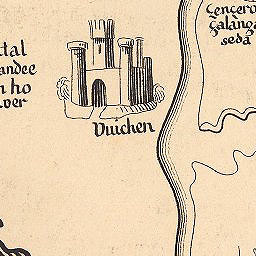 ctal
andee
n ho
ver
Vuichen
Gencero
galanga
seda